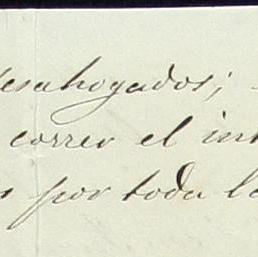 desahogados;
correr el int
por toda la